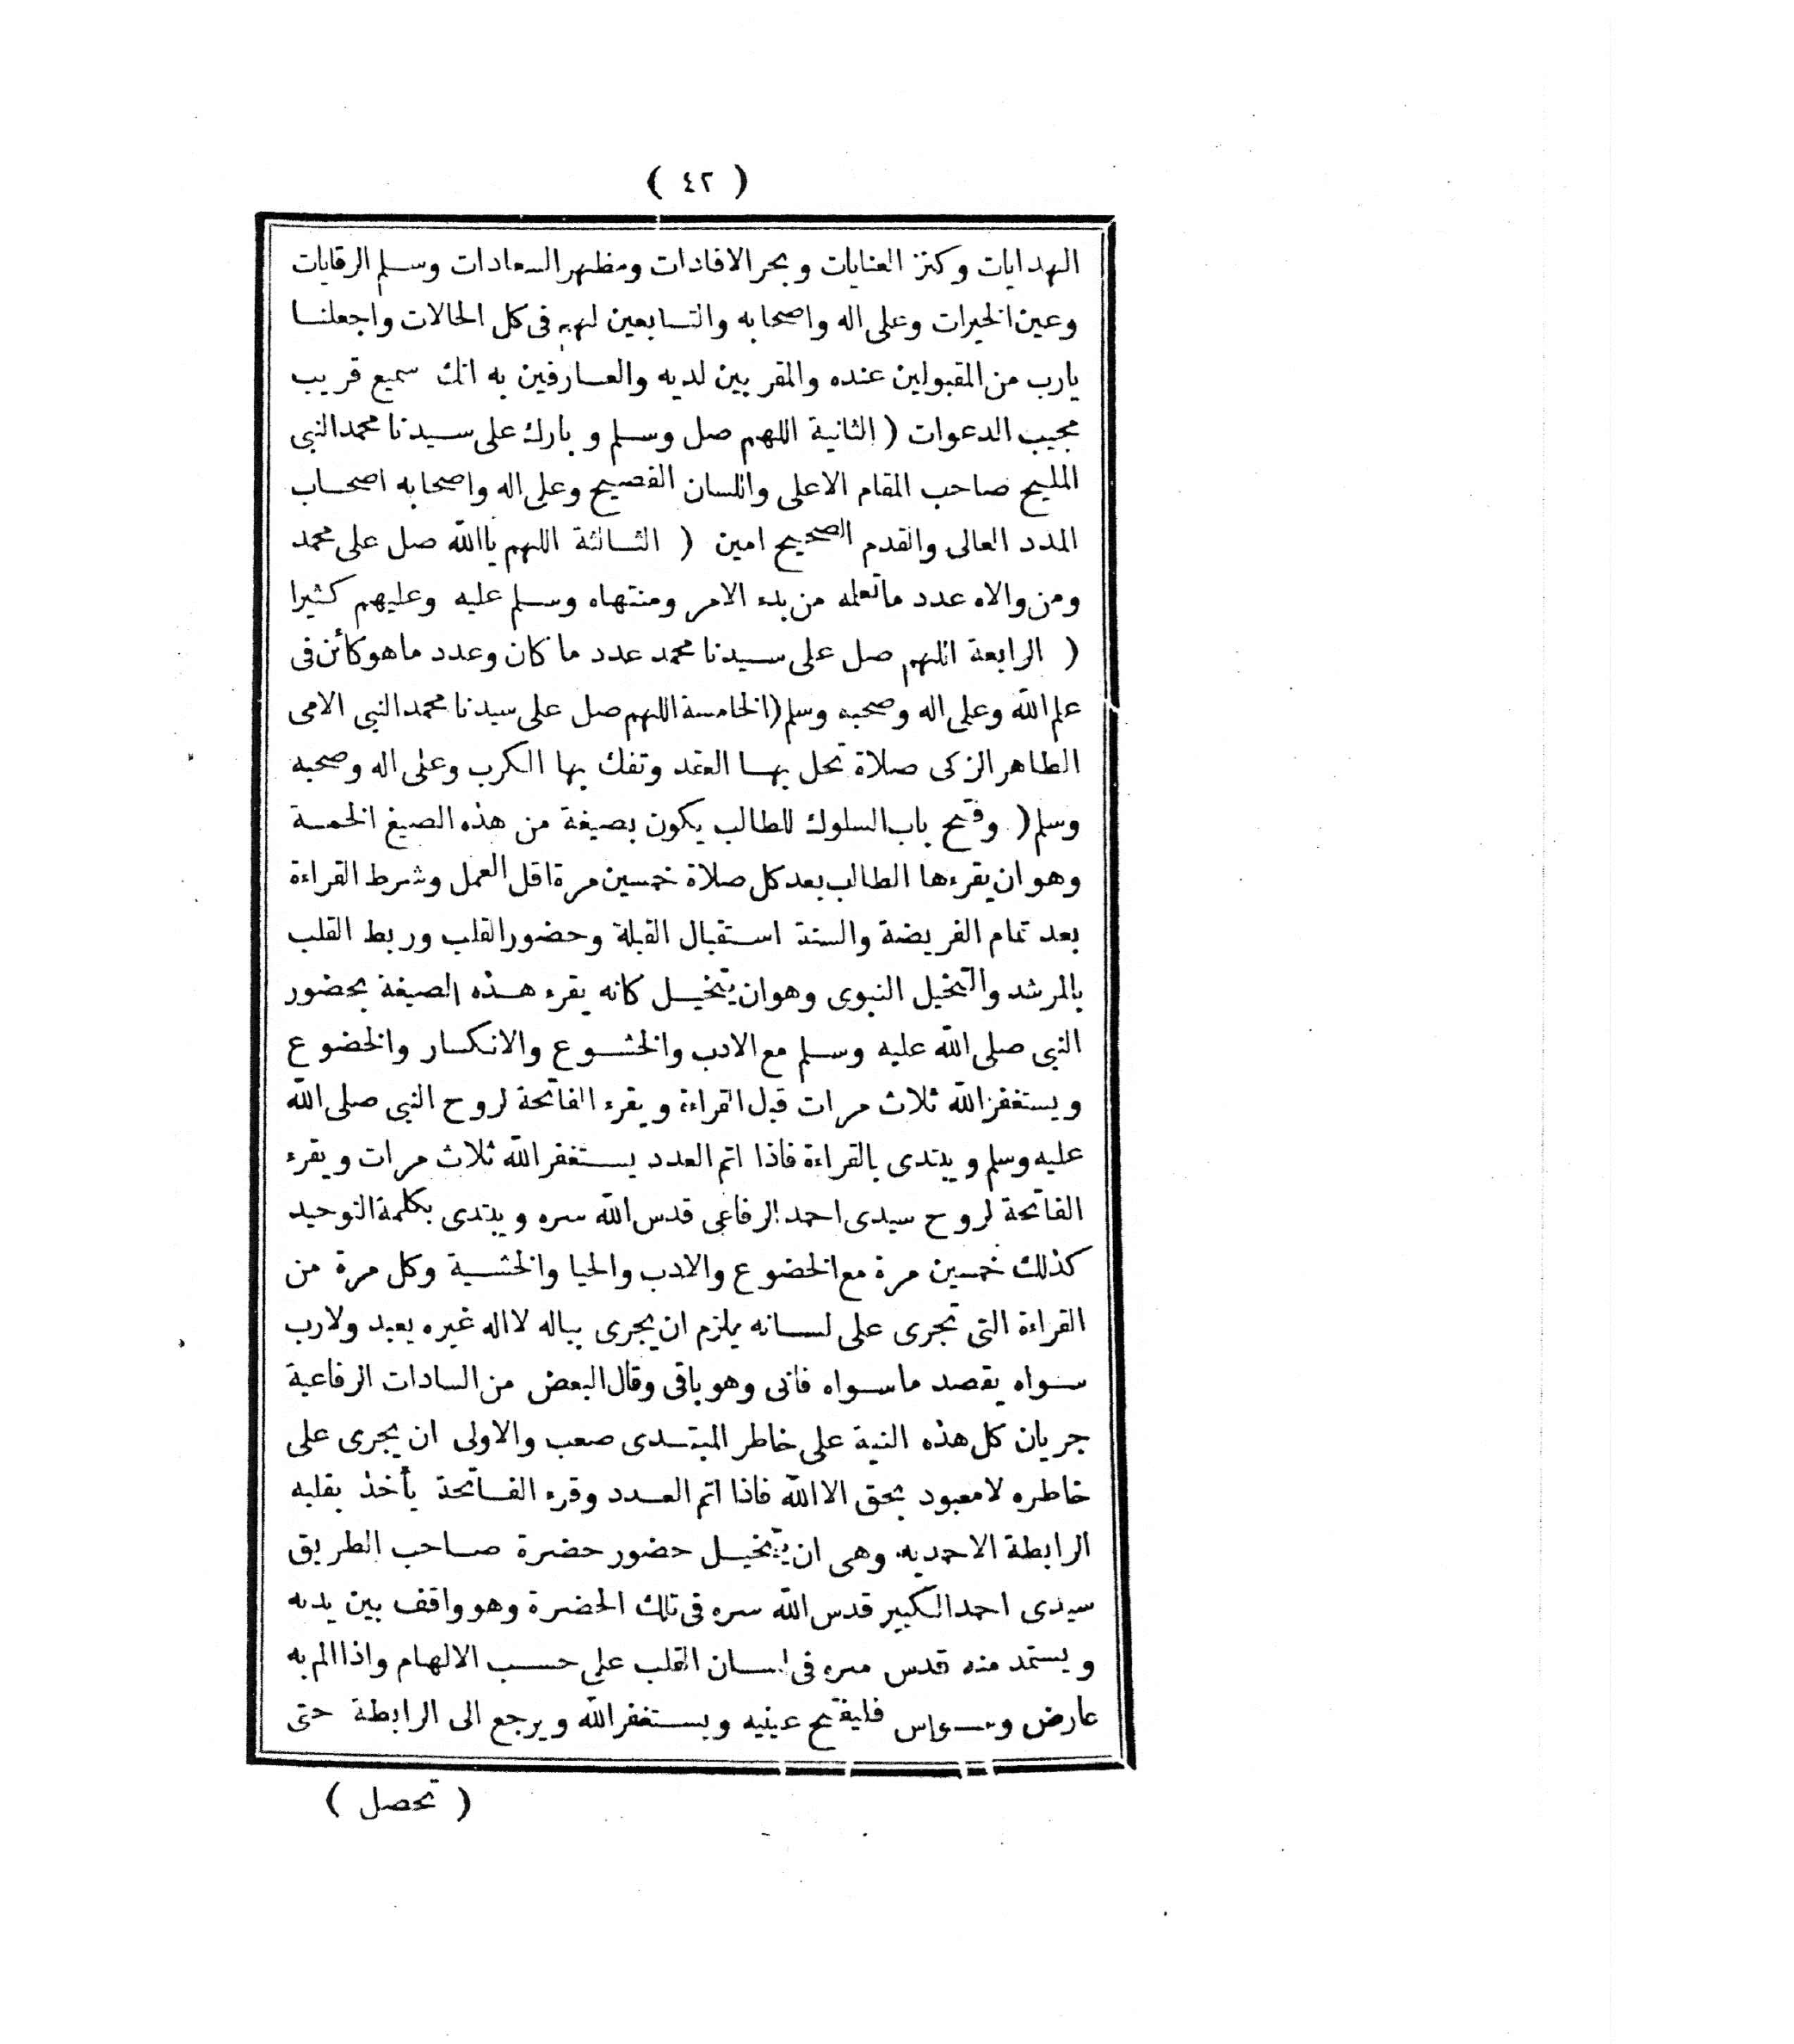 ( ٤٢ )
الهدايات وكنز العنايات وبحر الافادات ومظهر السعادات وسلم الرقايات
وعين الخيرات وعلى اله واصحابه والتابعين لهم فى كل الحالات واجعلنا
يارب من المقبولين عنده والمقربين لديه والعارفين به انك سميع قريب
مجيب الدعوات ( الثانية اللهم صل وسلم وبارك على سيدنا محمد النبى
المليح صاحب المقام الاعلى واللسان الفصيح وعلى اله واصحابه اصحاب
المدد العالى والقدم الصحيح امين ( الثالثة اللهم ياالله صل على محمد
ومن والاه عدد ماتعلمه من بدء الامر ومنتهاه وسلم عليه وعليهم كثيرا
( الرابعة اللهم صل على سيدنا محمد عدد ما كان وعدد ماهو كأئن فى
علم الله وعلى اله وصحبه وسلم ( الخامسة اللهم صل على سيدنا محمد النبى الامى
الطاهر الزكى صلاة تحل بها العقد وتفك بها الكرب وعلى اله وصحبه
وسلم ( وفتح باب السلوك للطالب يكون بصيغة من هذه الصيغ الخمسة
وهو ان يقرءها الطالب بعد كل صلاة خمسين مرة اقل العمل وشرط القراءة
بعد تمام الفريضة والسنة استقبال القبلة وحضور القلب وربط القلب
بالمرشد والتخيل النبوى وهو ان يتخيل كانه يقرء هذه الصيغة بحضور
النبى صلى الله عليه وسلم مع الادب والخشوع والانكسار والخضوع
ويستغفر الله ثلاث مرات قبل القراءة ويقرء الفاتحة لروح النبى صلى الله
عليه وسلم ويبتدى بالقراءة فاذا اتم العدد يستغفر الله ثلاث مرات ويقرء
الفاتحة لروح سيدى احمد الرفاعى قدس الله سره ويبتدى بكلمة التوحيد
كذلك خمسين مرة مع الخضوع والادب والحيا والخشية وكل مرة من
القراءة التى تجرى على لسانه يلزم ان يجرى بباله لا اله غيره يعبد ولا رب
سواه يقصد ماسواه فانى وهو باقى وقال البعض من السادات الرفاعية
جريان كل هذه النية على خاطر المبتدى صعب والاولى ان يجرى على
خاطره لا معبود بحق الا الله فاذا اتم العدد وقرء الفاتحة يأخذ بقلبه
الرابطة الاحمديه وهى ان يتخيل حضور حضرة صاحب الطريق
سيدى احمد الكبير قدس الله سره فى تلك الحضرة وهو واقف بين يديه
ويستمد منه قدس سره فى لسان القلب على حسب الالهام واذا الم به
عارض وسواس فليفتح عينيه ويستغفر الله ويرجع الى الرابطة حتى
( تحصل )